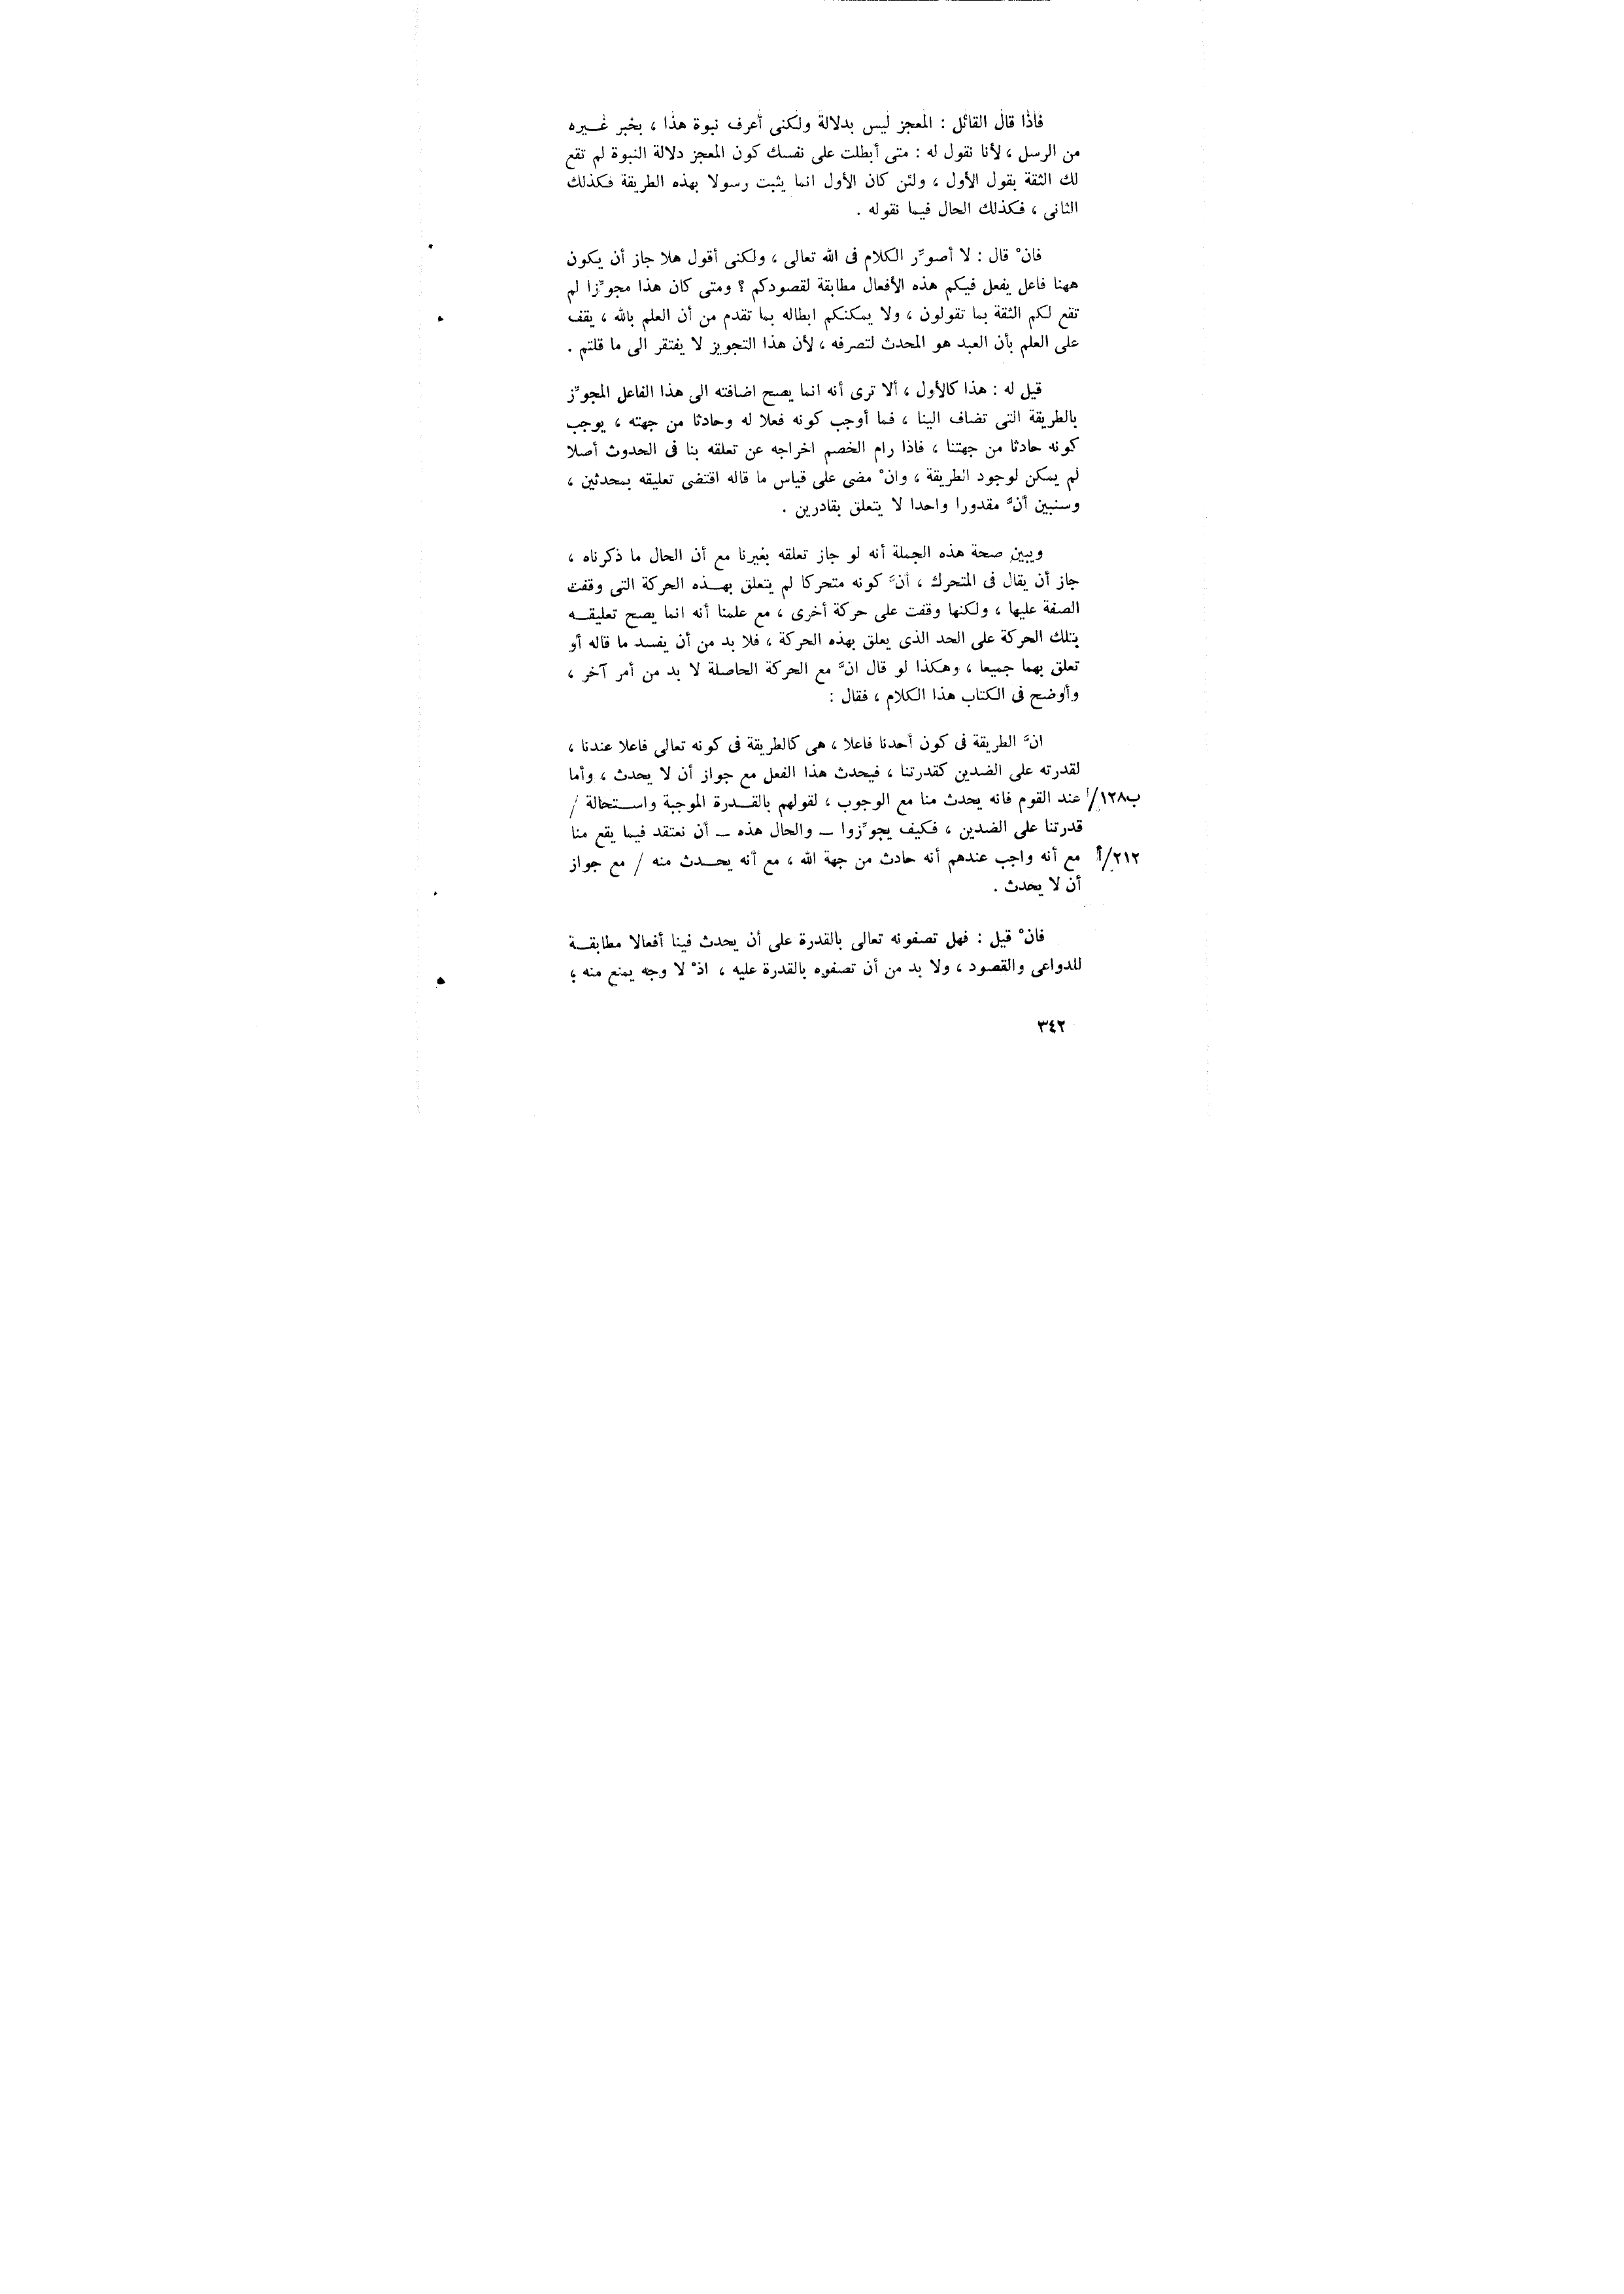 فاذا قال القائل : المعجز ليس بدلالة ولكنى أعرف نبوة هذا ، بخبر غـيره
من الرسل ، لأنا نقول له : متى أبطلت على نفسك كون المعجز دلالة النبوة لم تقع
لك الثقة بقول الأول ، ولئن كان الأول انما يثبت رسولا بهذه الطريقة فكذلك
الثانى ، فكذلك الحال فيما نقوله .
فانْ قال : لا أصوِّر الكلام فى الله تعالى ، ولكنى أقول هلا جاز أن يكون
ههنا فاعل يفعل فيكم هذه الأفعال مطابقة لقصودكم ؟ ومتى كان هذا مجوَّزا لم
تقع لكم الثقة بما تقولون ، ولا يمكنكم ابطاله بما تقدم من أن العلم بالله ، يقف
على العلم بأن العبد هو المحدث لتصرفه ، لأن هذا التجويز لا يفتقر الى ما قلتم .
قيل له : هذا كالأول ، ألا ترى أنه انما يصح اضافته الى هذا الفاعل المجوَّز
بالطريقة التى تضاف الينا ، فما أوجب كونه فعلا له وحادثا من جهته ، يوجب
كونه حادثا من جهتنا ، فاذا رام الخصم اخراجه عن تعلقه بنا فى الحدوث أصلا
لم يمكن لوجود الطريقة ، وانْ مضى على قياس ما قاله اقتضى تعليقه بمحدثين ،
وسنبين أنَّ مقدورا واحدا لا يتعلق بقادرين .
ويبين صحة هذه الجملة أنه لو جاز تعلقه بغيرنا مع أن الحال ما ذكرناه ،
جاز أن يقال فى المتحرك ، أنَّ كونه متحركا لم يتعلق بهـذه الحركة التى وقفت
الصفة عليها ، ولكنها وقفت على حركة أخرى ، مع علمنا أنه انما يصح تعليقـه
بتلك الحركة على الحد الذى يعلق بهذه الحركة ، فلا بد من أن يفسد ما قاله أو
تعلق بهما جميعا ، وهكذا لو قال انَّ مع الحركة الحاصلة لا بد من أمر آخر ،
وأوضح فى الكتاب هذا الكلام ، فقال :
انَّ الطريقة فى كون أحدنا فاعلا ، هى كالطريقة فى كونه تعالى فاعلا عندنا ،
لقدرته على الضدين كقدرتنا ، فيحدث هذا الفعل مع جواز أن لا يحدث ، وأما
١٢٨ب/ عند القوم فانه يحدث منا مع الوجوب ، لقولهم بالقـدرة الموجبة واسـتحالة /
قدرتنا على الضدين ، فكيف يجوِّزوا ــ والحال هذه ــ أن نعتقد فيما يقع منا
٢١٢/أ مع أنه واجب عندهم أنه حادث من جهة الله ، مع أنه يحـدث منه / مع جواز
أن لا يحدث .
فانْ قيل : فهل تصفونه تعالى بالقدرة على أن يحدث فينا أفعالا مطابقـة
للدواعى والقصود ، ولا بد من أن تصفوه بالقدرة عليه ، اذْ لا وجه يمنع منه ؛
٣٤٢